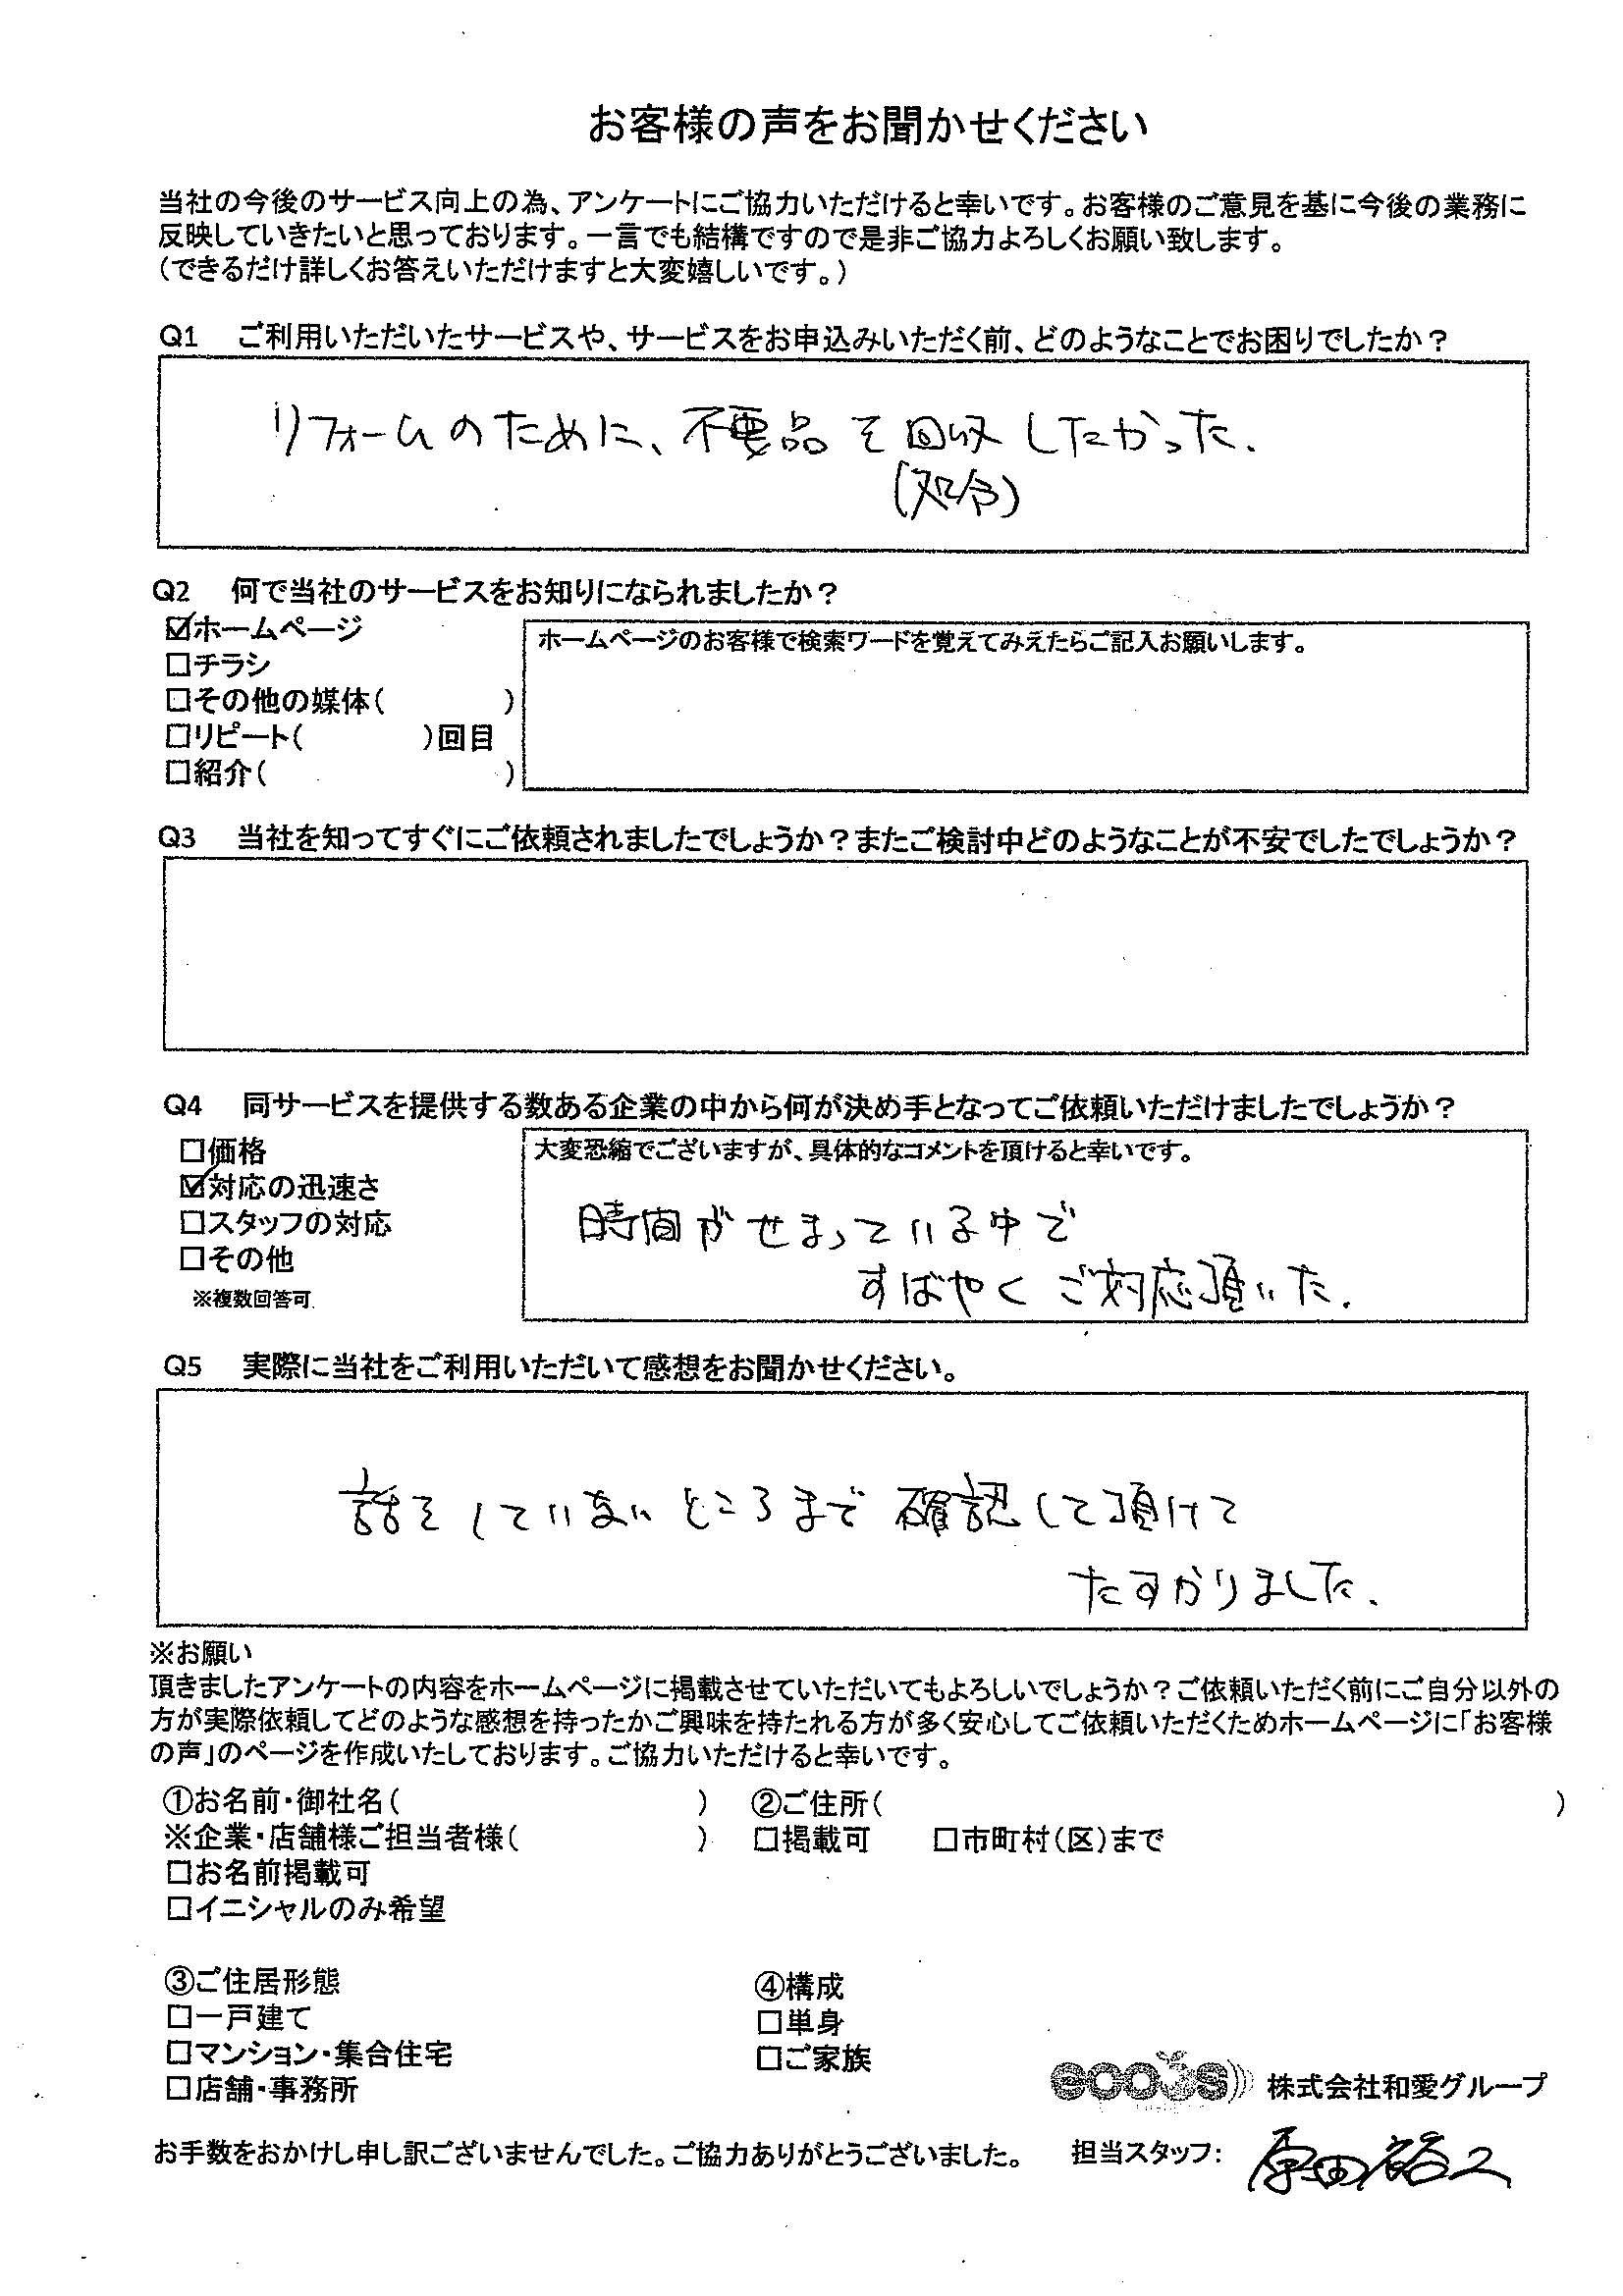 お客様の声をお聞かせください
当社の今後のサービス向上の為、アンケートにご協力いただけると幸いです。お客様のご意見を基に今後の業務に
反映していきたいと思っております。一言でも結構ですので是非ご協力よろしくお願い致します。
（できるだけ詳しくお答えいただけますと大変嬉しいです。）
Q1 ご利用いただいたサービスや、サービスをお申込みいただく前、どのようなことでお困りでしたか？
リフォームのために、不要品を回収したかった.
(処分)
Q2 何で当社のサービスをお知りになられましたか？
☑ホームページ
□チラシ
□その他の媒体（ ）
□リピート（ ）回目
□紹介（ ）
ホームページのお客様で検索ワードを覚えてみえたらご記入お願いします。
Q3 当社を知ってすぐにご依頼されましたでしょうか？またご検討中どのようなことが不安でしたでしょうか？
Q4 同サービスを提供する数ある企業の中から何が決め手となってご依頼いただけましたでしょうか？
□価格
☑対応の迅速さ
□スタッフの対応
□その他
※複数回答可
大変恐縮でございますが、具体的なコメントを頂けると幸いです。
時間がせまっている中で
すばやくご対応頂いた.
Q5 実際に当社をご利用いただいて感想をお聞かせください。
話をしていないところまで確認して頂けて
たすかりました.
※お願い
頂きましたアンケートの内容をホームページに掲載させていただいてもよろしいでしょうか？ご依頼いただく前にご自分以外の
方が実際依頼してどのような感想を持ったかご興味を持たれる方が多く安心してご依頼いただくためホームページに「お客様
の声」のページを作成いたしております。ご協力いただけると幸いです。
①お名前・御社名（ ） ②ご住所（ ）
※企業・店舗様ご担当者様（ ） □掲載可 □市町村（区）まで
□お名前掲載可
□イニシャルのみ希望
③ご住居形態 ④構成
□一戸建て □単身
□マンション・集合住宅 □ご家族
□店舗・事務所
株式会社和愛グループ
お手数をおかけし申し訳ございませんでした。ご協力ありがとうございました。 担当スタッフ： 原田